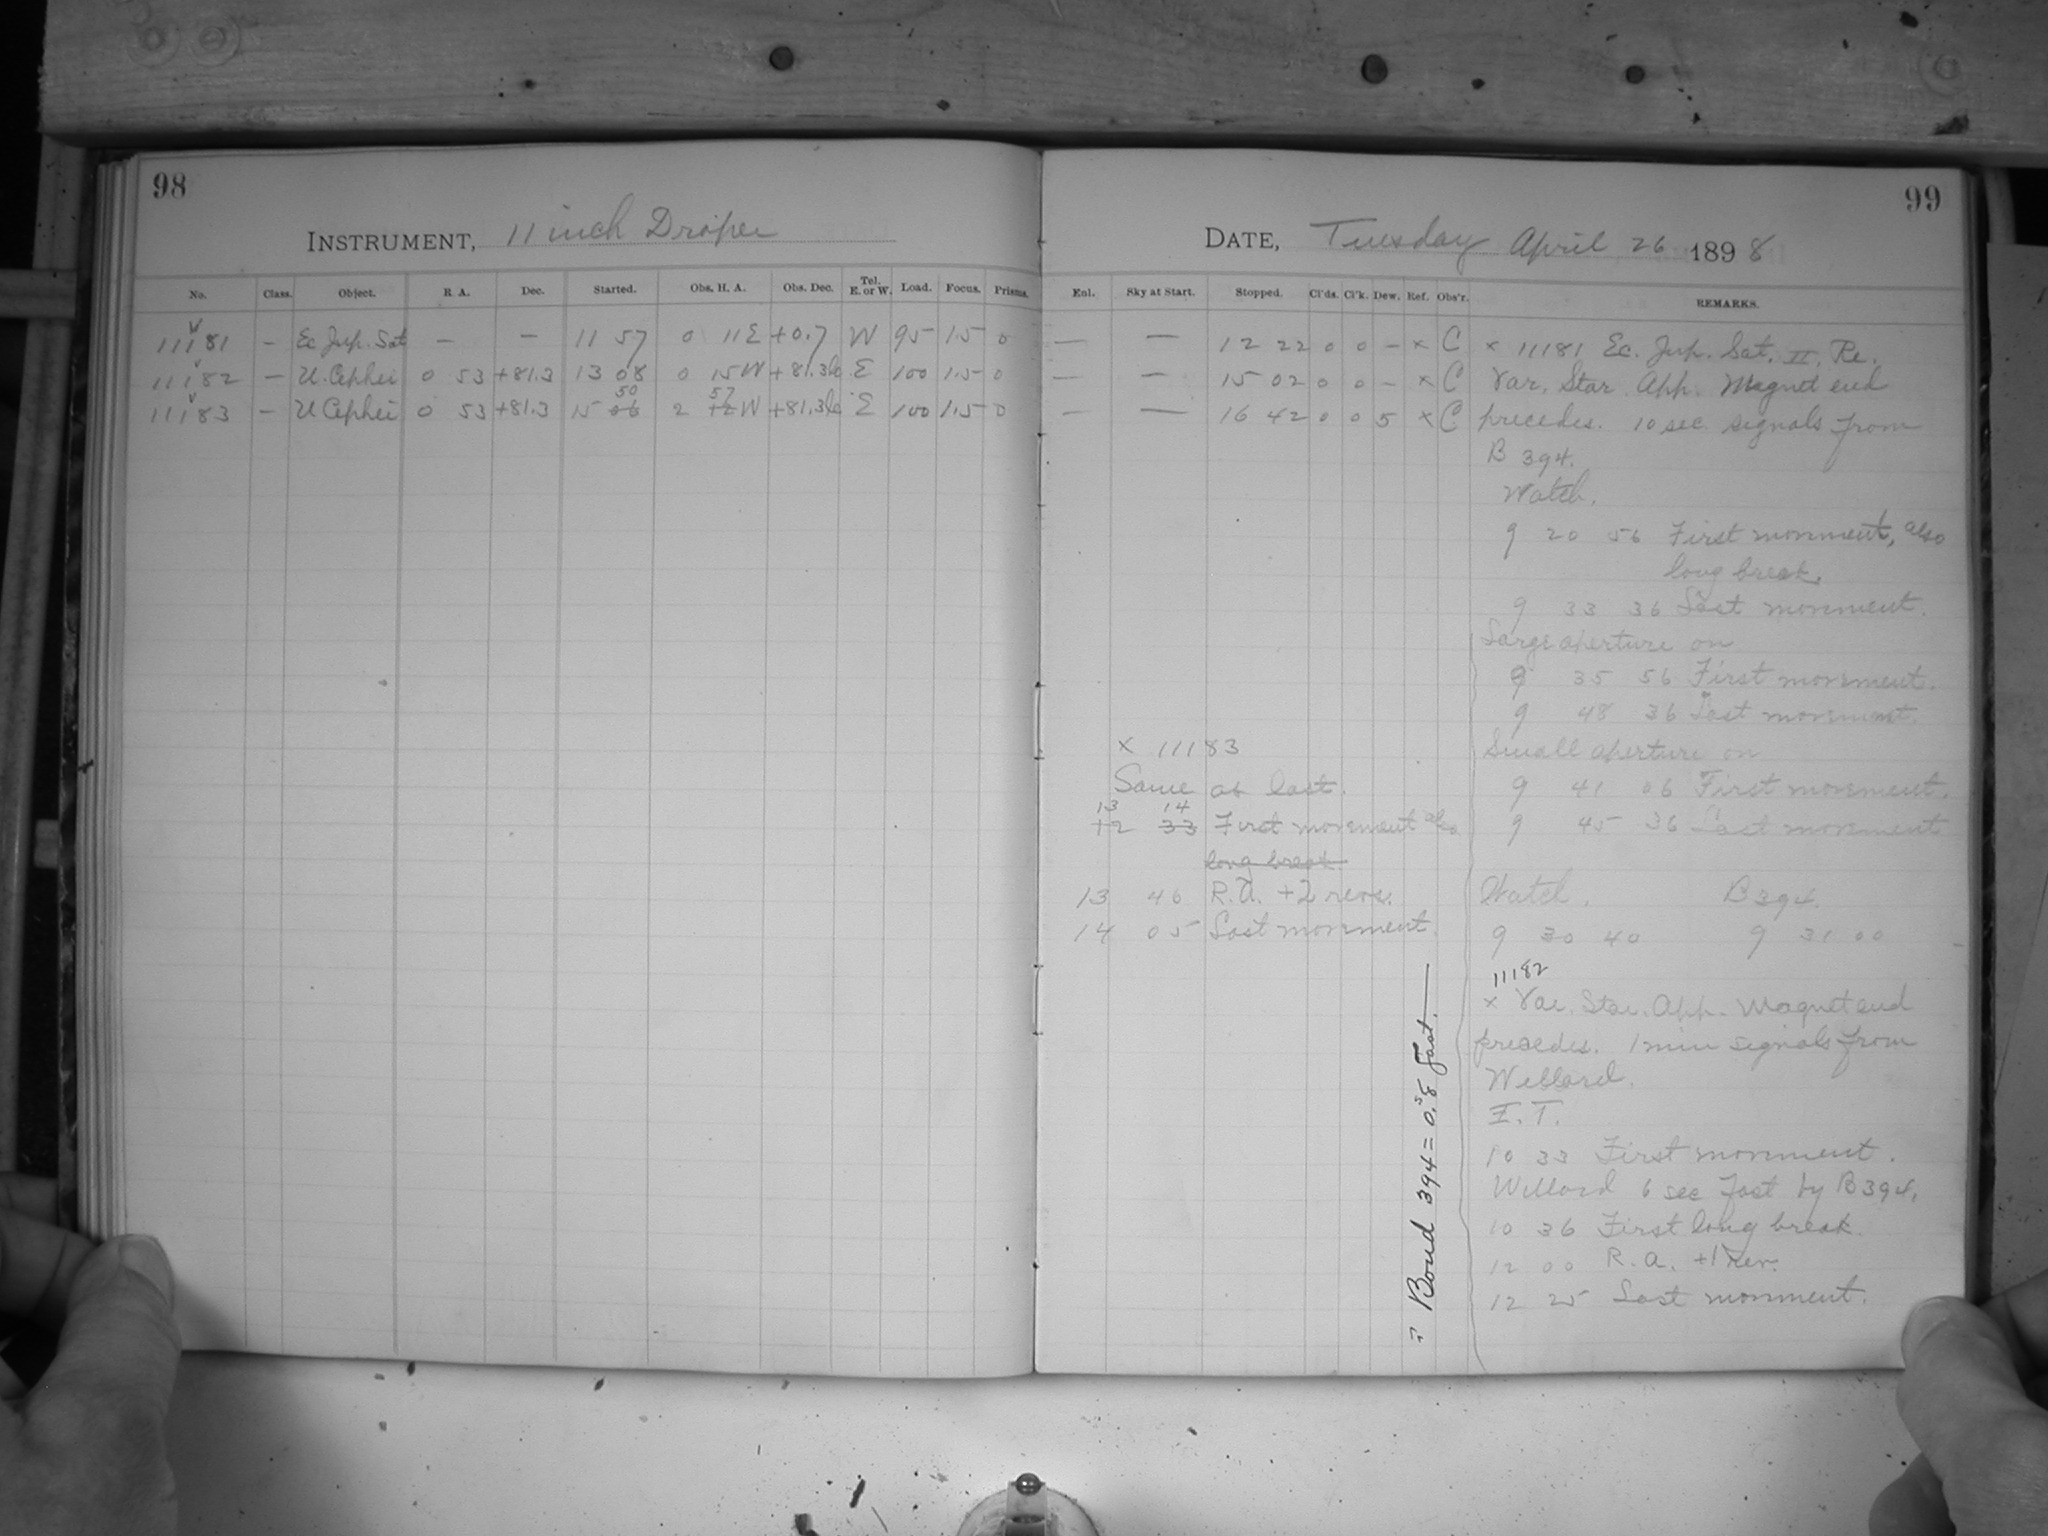 98
INSTRUMENT, 11 inch Draper
No. Class. Object. R. A. Dec. Started. Obs. H. A. Obs. Dec. Tel. E. or W. Load. Focus. Prisms.
11181 – Ec. Jup. Sat — – 11 57 0 11E +0.7 W 95 1.5 0
11182 – U. Cephei 0 53 +81.3 13 08 0 15W +81.3 E 100 1.5 0
11183 – U Cephei 0 53 +81.3 15 50 06 2 57 12 W +81.3 E 100 1.5 0
99
DATE, Tuesday April 26 1898
Enl. Sky at Start. Stopped. Cl'ds. Cl'k. Dew. Ref. Obs'r. REMARKS.
— — 12 22 0 0 – x C x 11181 Ec. Jup. Sat. II. Re.
— — 15 02 0 0 – x C Var. Star. App. Magnet end
— — 16 42 0 0 5 x C precedes. 10 sec. signals from
B 394.
Watch.
9 20 56 First movement, also
long break.
9 33 36 Last movement.
Large aperture on
9 35 56 First movement.
9 48 36 Last movement.
Small aperture on
9 41 06 First movement.
9 45 36 Last movement
Watch. B 394.
9 30 40 9 31 00
11182
x Var. Star. App. Magnet end
precedes. 1 min signals from
Willard.
E. T.
10 33 First movement.
Willard 6 sec fast by B 394.
10 36 First long break.
12 00 R. A. +1 Rev.
12 25 Last movement.
x 11183
Same as last.
13 14
12 33 First movement also
long break.
13 46 R. A. +2 revs.
14 05 Last movement.
Bond 394 = 0.8s fast.